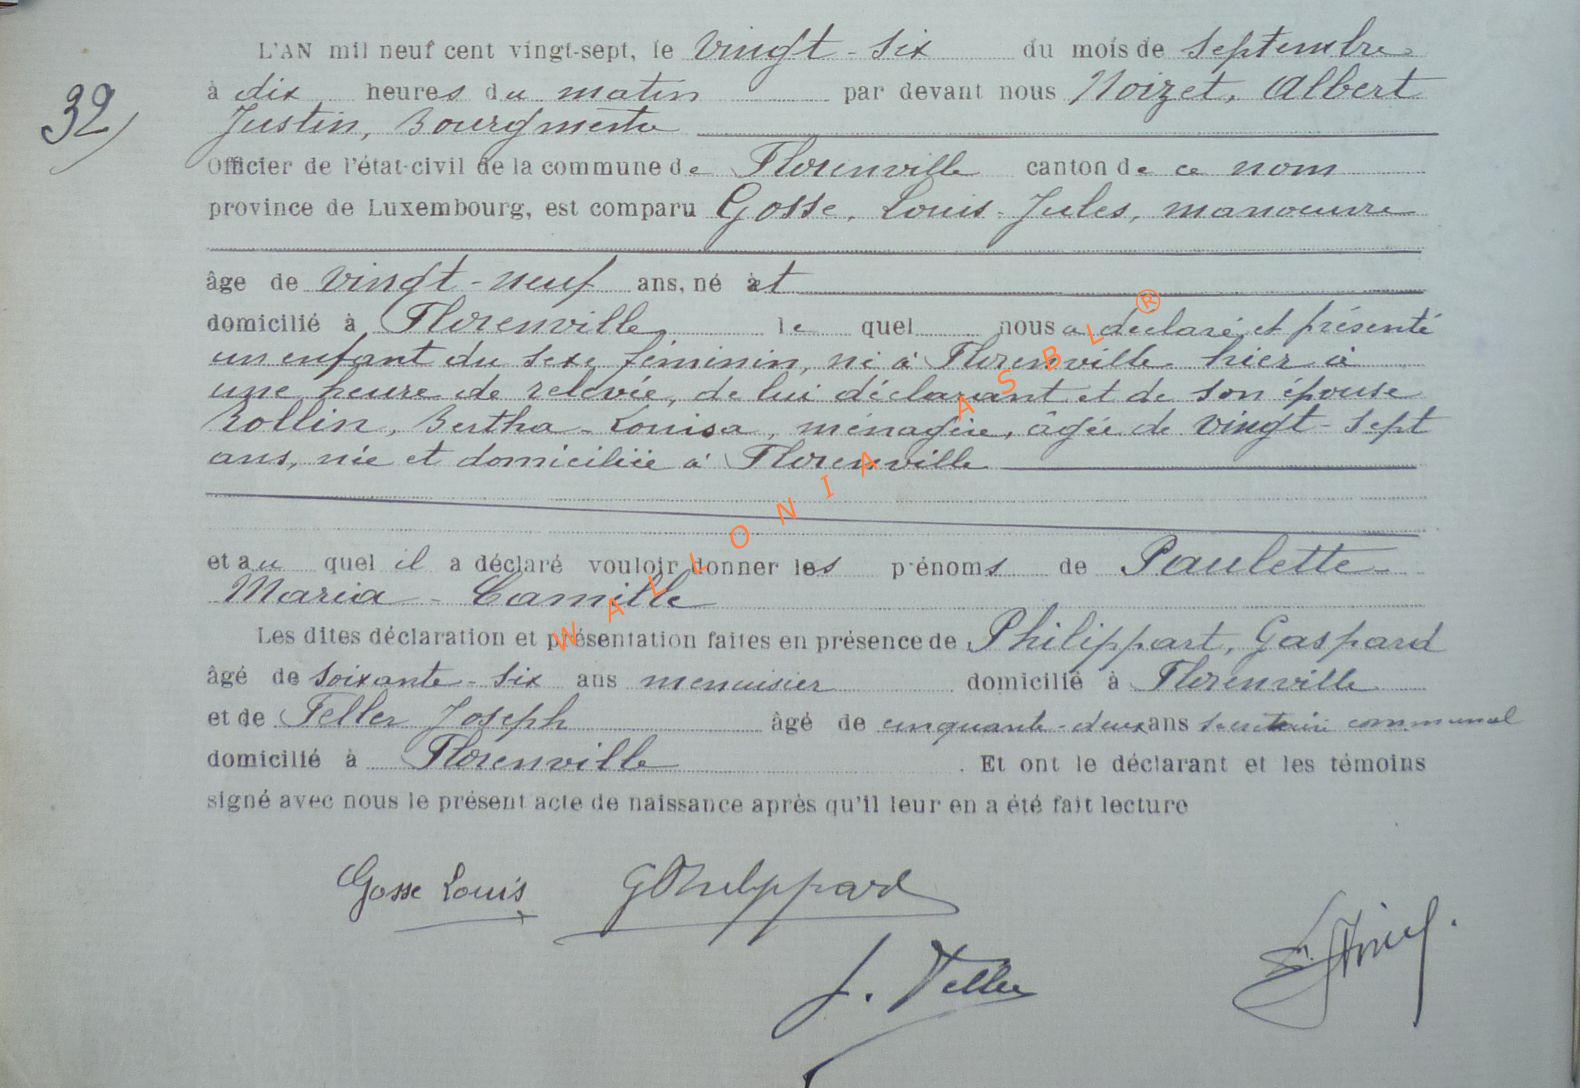 L'AN mil neuf cent vingt-sept, le vingt-six du mois de septembre
32 à dix heures du matin par devant nous Noizet, Albert
Justin, Bourgmestre
Officier de l'état-civil de la commune de Florenville canton de ce nom
province de Luxembourg, est comparu Gosse, Louis-Jules, manoeuvre
âge de vingt-neuf ans, né et
domicilié à Florenville le quel nous a déclaré et présenté
un enfant du sexe féminin, né à Florenville hier à
une heure de relevée, de lui déclarant et de son épouse
Rollin, Bertha-Louisa, ménagère, âgée de vingt-sept
ans, née et domiciliée à Florenville
et au quel il a déclaré vouloir donner les prénoms de Paulette-
Maria-Camille
Les dites déclaration et présentation faites en présence de Philippart, Gaspard
âgé de soixante-six ans menuisier domicilié à Florenville
et de Feller Joseph âgé de cinquante-deux ans secrétaire communal
domicilié à Florenville. Et ont le déclarant et les témoins
signé avec nous le présent acte de naissance après qu'il leur en a été fait lecture
Gosse Louis
J. Feller
WALLONIA ASBL ®